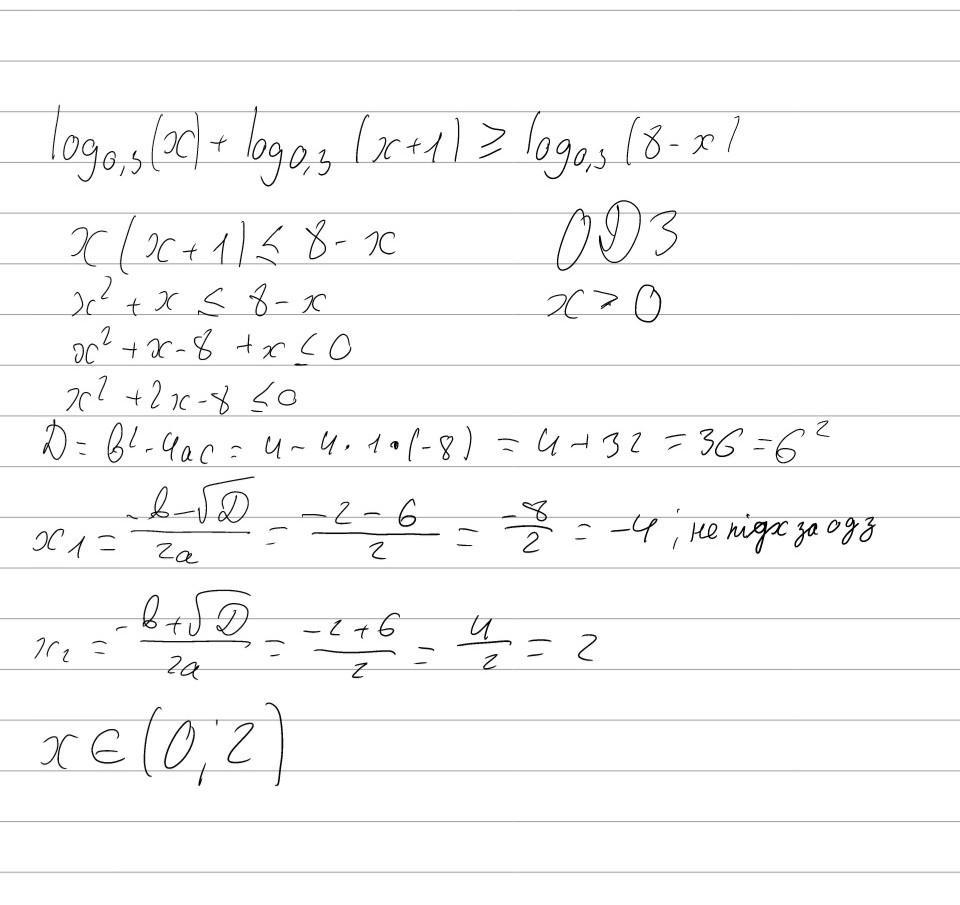 log₀,₃(x) + log₀,₃ (x+1) ≥ log₀,₃ (8-x)
x(x+1) ≤ 8-x ОДЗ
x² + x ≤ 8-x x > 0
x² + x - 8 + x ≤ 0
x² + 2x - 8 ≤ 0
D = b² - 4ac = 4 - 4 · 1 · (-8) = 4 + 32 = 36 = 6²
x1 = (-b-√D)/(2a) = (-2-6)/2 = -8/2 = -4 ; не підх за одз
x₂ = (-b+√D)/(2a) = (-2+6)/2 = 4/2 = 2
x ∈ (0; 2)